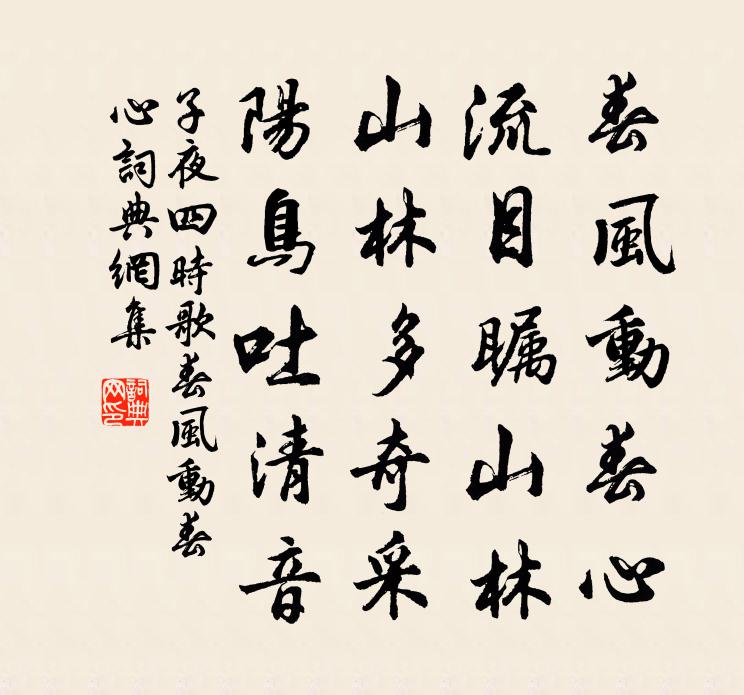 春風動春心
流目瞩山林
山林多奇采
陽鳥吐清音
子夜四時歌春風動春
心詞典網集
詞典
网印